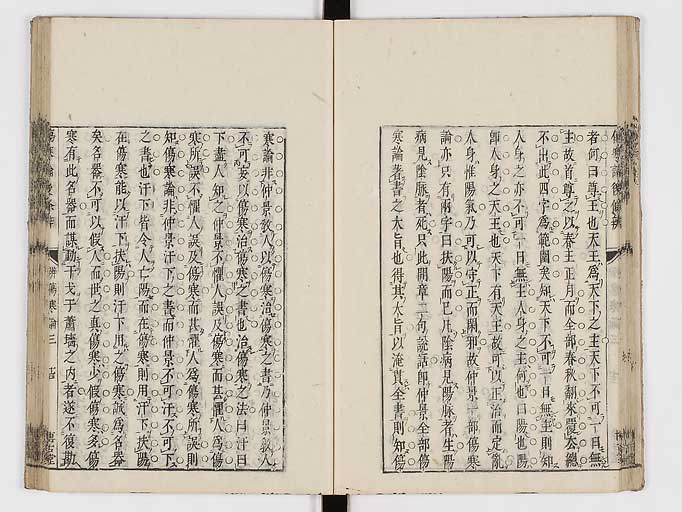 者何曰尊王也天王爲天下之主天下不可一日無
主故首尊之以春王正月而全部春秋翻來覆去總
不出此四字爲範圍矣知天下不可一日無主則知
人身之亦不可一日無主人身之主何也曰陽也陽
即人身之天王也天下有天王故可以正治而定亂
人身惟陽氣乃可以守正而闢邪故仲景一部傷寒
論亦只有兩字曰扶陽而已凡陰病見陽脉者生陽
病見陰脉者死只此開章二句說話即仲景全部傷
寒論著書之大旨也得其大旨以淹貫全書則知傷
寒論非仲景敎人以傷寒治傷寒之書乃仲景敎人
不可妄以傷寒治傷寒之書也治傷寒之法曰汗曰
下盡人知之仲景不懼人誤及傷寒而甚懼人爲傷
寒所誤不懼人誤及傷寒而甚懼人爲傷寒所誤則
知傷寒論非仲景汗下之書而仲景不可汗不可下
之書也汗下皆令人亡陽而在傷寒則用汗下扶陽
在傷寒能以汗下扶陽則汗下用之傷寒誠爲名器
矣名器不可以假人而世之真傷寒少假傷寒多傷
寒有此名器而謀動干戈于蕭墻之內者遂不復勘
辨傷寒論三